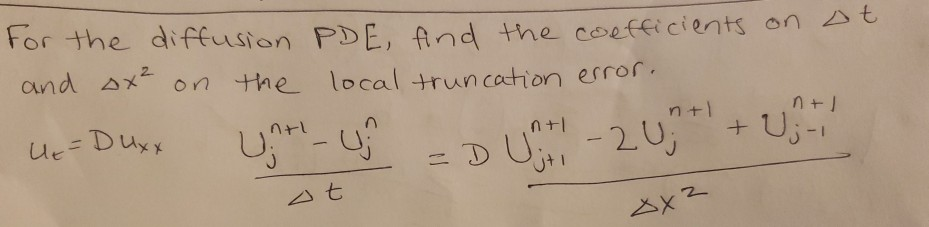 For the diffusion PDE, find the coefficients on Δt
and Δx² on the local truncation error.
u_t = D u_xx (U_j^{n+1} - U_j^n) / Δt = D (U_{j+1}^{n+1} - 2U_j^{n+1} + U_{j-1}^{n+1}) / Δx²